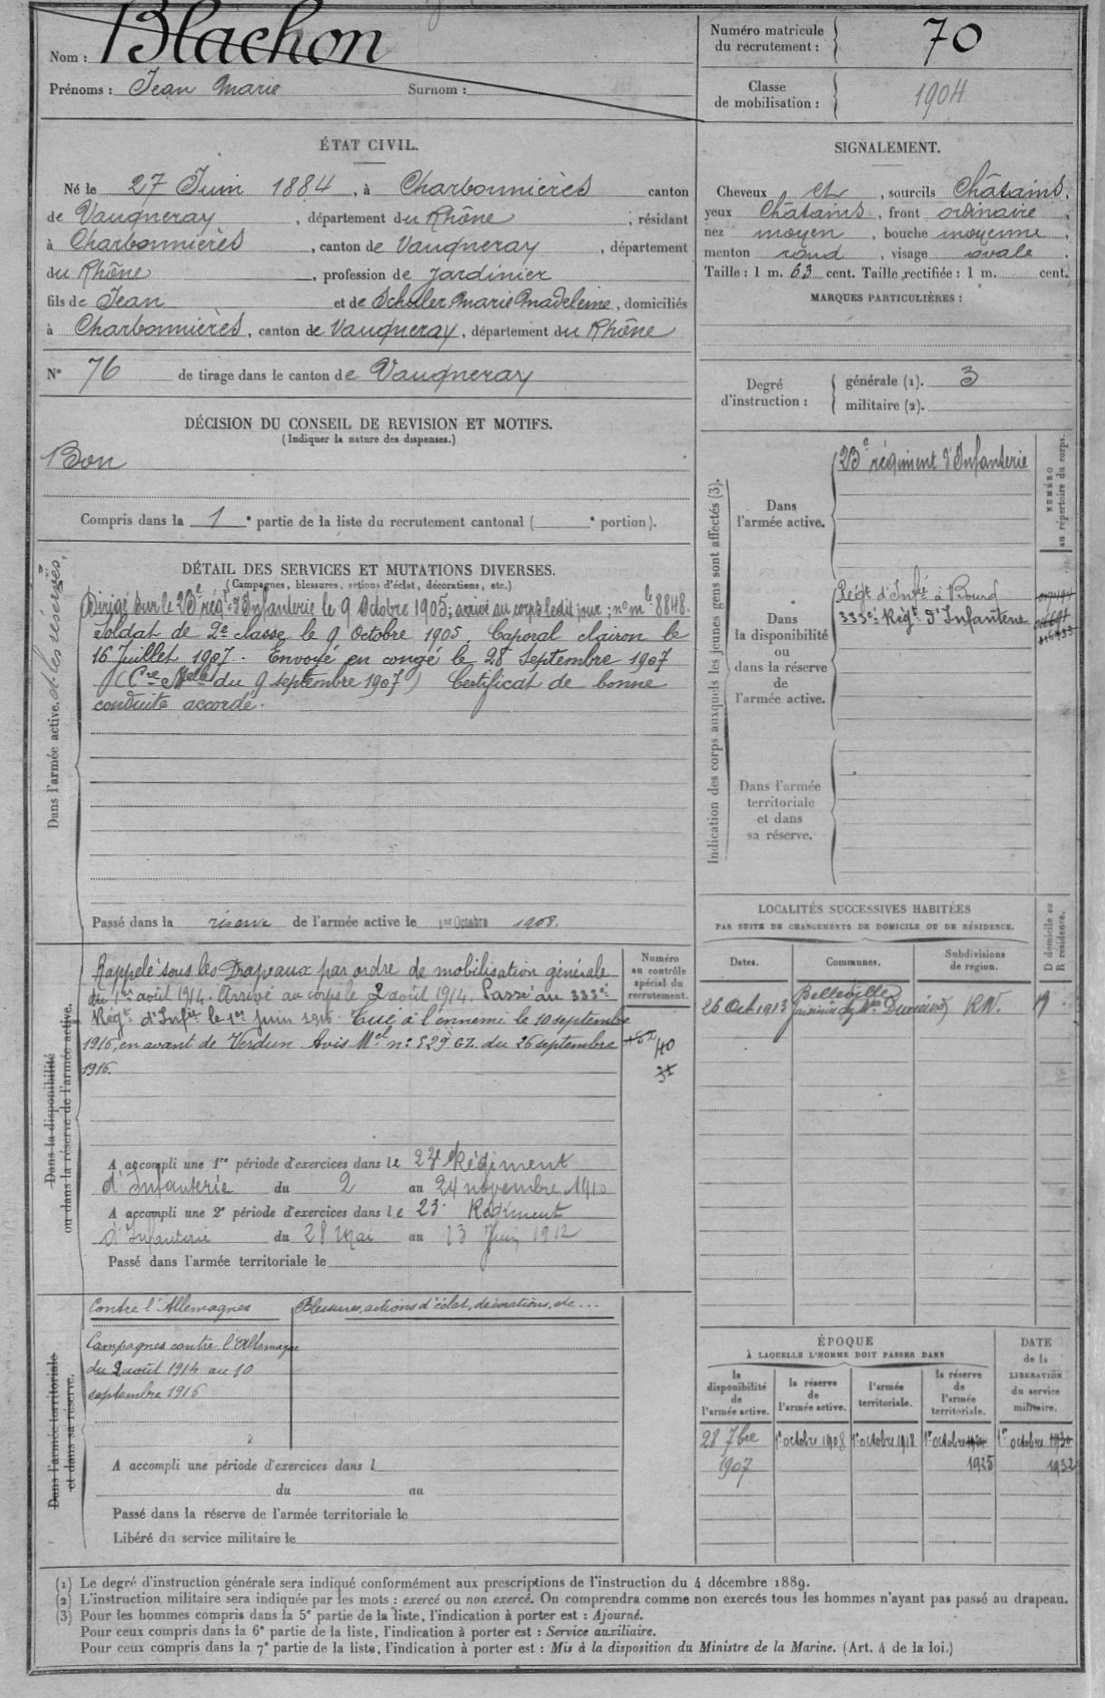 Nom : Blachon
Prénoms : Jean Marie Surnom :
Numéro matricule du recrutement : 70
Classe de mobilisation : 1904
ÉTAT CIVIL.
Né le 27 Juin 1884, à Charbonnières canton
de Vaugneray, département du Rhône, résidant
à Charbonnières, canton de Vaugneray, département
du Rhône, profession de Jardinier
fils de Jean et de Scholer Marie Madeleine, domiciliés
à Charbonnières, canton de Vaugneray, département du Rhône
N° 76 de tirage dans le canton de Vaugneray
SIGNALEMENT.
Cheveux et, sourcils Châtains,
yeux Châtains, front ordinaire,
nez moyen, bouche moyenne,
menton rond, visage ovale.
Taille : 1 m. 63 cent. Taille rectifiée : 1 m. cent.
MARQUES PARTICULIÈRES :
Degré d'instruction :
générale (1). 3
militaire (2).
DÉCISION DU CONSEIL DE REVISION ET MOTIFS.
(Indiquer la nature des dispenses.)
Bon
Compris dans la 1e partie de la liste du recrutement cantonal ( e portion).
Dans l'armée active. et les réserves.
DÉTAIL DES SERVICES ET MUTATIONS DIVERSES.
(Campagnes, blessures, actions d'éclat, décorations, etc.)
Dirigé sur le 23e rég.t d'Infanterie le 9 Octobre 1905; arrivé au corps ledit jour; n° mle 8848.
Soldat de 2e classe le 9 Octobre 1905. Caporal clairon le
16 Juillet 1907. Envoyé en congé le 28 Septembre 1907
(Cre Melle du 9 septembre 1907) Certificat de bonne
conduite accordé.
Passé dans la réserve de l'armée active le 1er Octobre 1908.
Indication des corps auxquels les jeunes gens sont affectés (3).
NUMÉRO au répertoire du corps.
Dans l'armée active.
23e régiment d'Infanterie
Dans la disponibilité ou dans la réserve de l'armée active.
Régt d'Infie à Bourg
333e Régt d'Infanterie
Dans l'armée territoriale et dans sa réserve.
LOCALITÉS SUCCESSIVES HABITÉES
PAR SUITE DE CHANGEMENTS DE DOMICILE OU DE RÉSIDENCE.
D domicile ou R résidence.
Dates. Communes. Subdivisions de région.
26 Oct 1913 Belleville RN.
Dans la disponibilité
ou dans la réserve de l'armée active.
Numéro au contrôle spécial du recrutement.
Rappelé sous les Drapeaux par ordre de mobilisation générale
du 1er août 1914. Arrivé au corps le 2 août 1914. Passé au 333e
Régt d'Infie le 1er Juin 1916. Tué à l'ennemi le 10 septembre
1916, en avant de Verdun Avis Mel n° 529 GZ. du 26 septembre
1916.
40
A accompli une 1re période d'exercices dans le 23e Régiment
d'Infanterie du 2 au 24 novembre 1910
A accompli une 2e période d'exercices dans le 23e Régiment
d'Infanterie du 28 Mai au 13 Juin 1912
Passé dans l'armée territoriale le
Dans l'armée territoriale
et dans sa réserve.
Contre l'Allemagne
Blessures, actions d'éclat, décorations, etc...
Campagnes contre l'Allemagne
du 2 août 1914 au 10
septembre 1916
A accompli une période d'exercices dans l
du au
Passé dans la réserve de l'armée territoriale le
Libéré du service militaire le
ÉPOQUE
À LAQUELLE L'HOMME DOIT PASSER DANS
DATE de la LIBÉRATION du service militaire.
la disponibilité de l'armée active.
la réserve de l'armée active.
l'armée territoriale.
la réserve de l'armée territoriale.
28 7bre 1907
1er octobre 1908
1er octobre 1918
1er octobre 1925
1er octobre 1932
(1) Le degré d'instruction générale sera indiqué conformément aux prescriptions de l'instruction du 4 décembre 1889.
(2) L'instruction militaire sera indiquée par les mots : exercé ou non exercé. On comprendra comme non exercés tous les hommes n'ayant pas passé au drapeau.
(3) Pour les hommes compris dans la 5e partie de la liste, l'indication à porter est : Ajourné.
Pour ceux compris dans la 6e partie de la liste, l'indication à porter est : Service auxiliaire.
Pour ceux compris dans la 7e partie de la liste, l'indication à porter est : Mis à la disposition du Ministre de la Marine. (Art. 4 de la loi.)